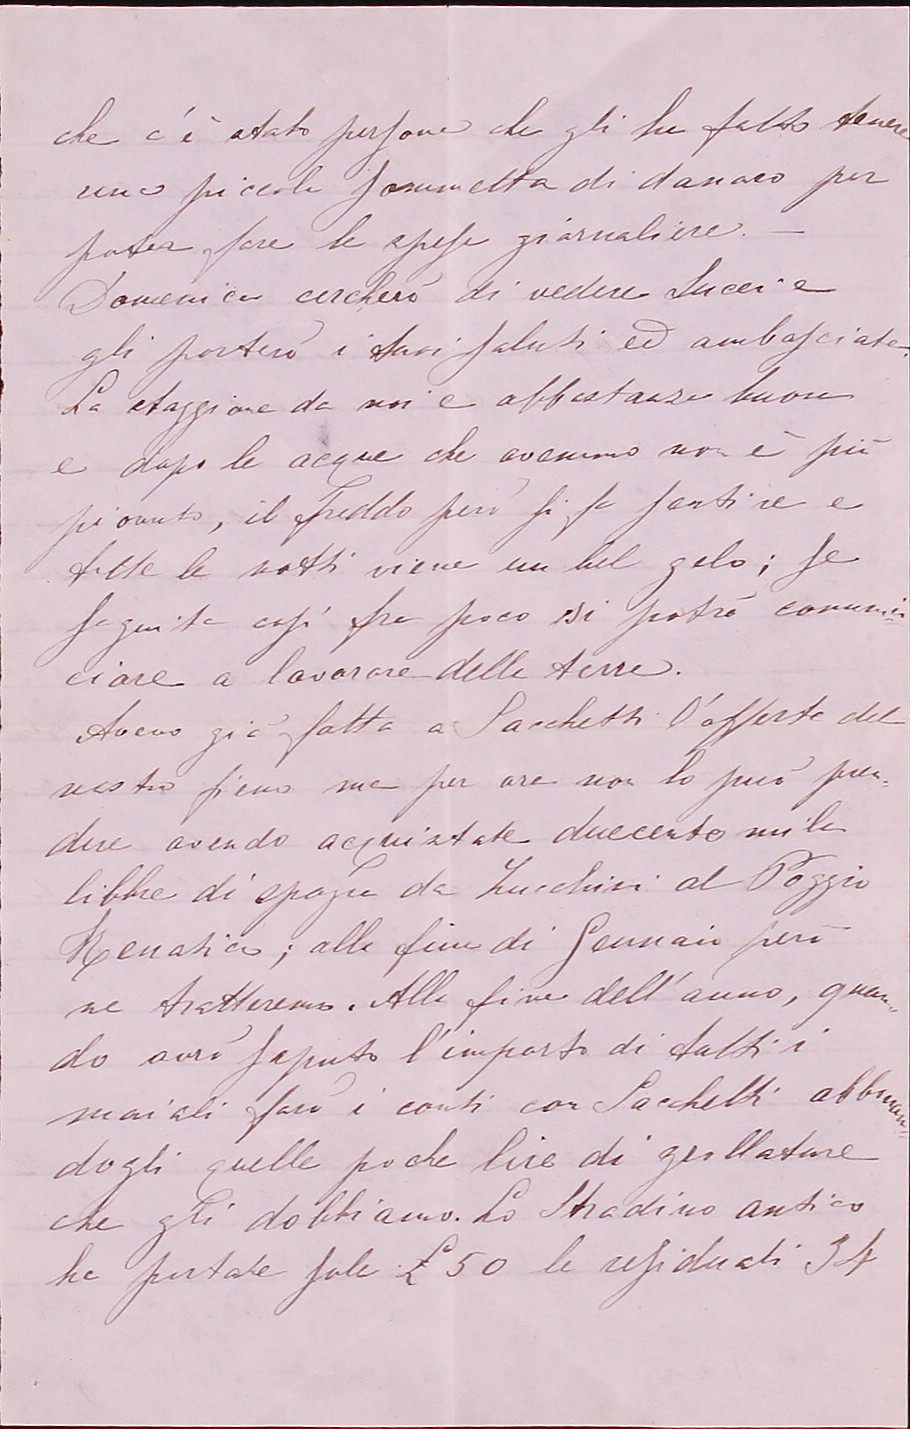 che c'è stato persone che gli ha fatto tenere
una piccola sommetta di danaro per
poter fare le spese giornaliere. —
Domenica cercherò di vedere Succi e
gli porterò i tuoi saluti ed ambasciate.
La stagione da noi è abbastanza buona
e dopo le acque che avemmo non è più
piovuto, il freddo però si fa sentire e
tutte le notti viene un bel gelo; se
seguita così fra poco si potrà commin-
ciare a lavorare delle terre.
Avevo già fatta a Sacchetti l'offerta del
nostro fieno ma per ora non lo può pren-
dere avendo acquistate duecento mila
libbre di spagna da Zucchini al Poggio
Renatico; alla fine di Gennaio però
ne tratteremo. Alla fine dell'anno, quan-
do avrò saputo l'importo di tutti i
maiali farò i conti con Sacchetti abbuonan-
dogli quelle poche lire di grollature
che gli dobbiamo. Lo Stradino antico
ha portate sole £ 50 le residuali 34